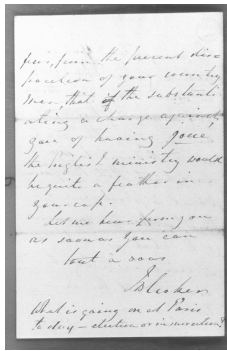 from the present dis=
position of your country
men, that if the substanti
ating a charge against
you of having
the English ministry would
be quite a feather in
your cap.
Let me hear from you
as soon as you can
tout à vous
What is going on at Paris
to day — election or insurrection?